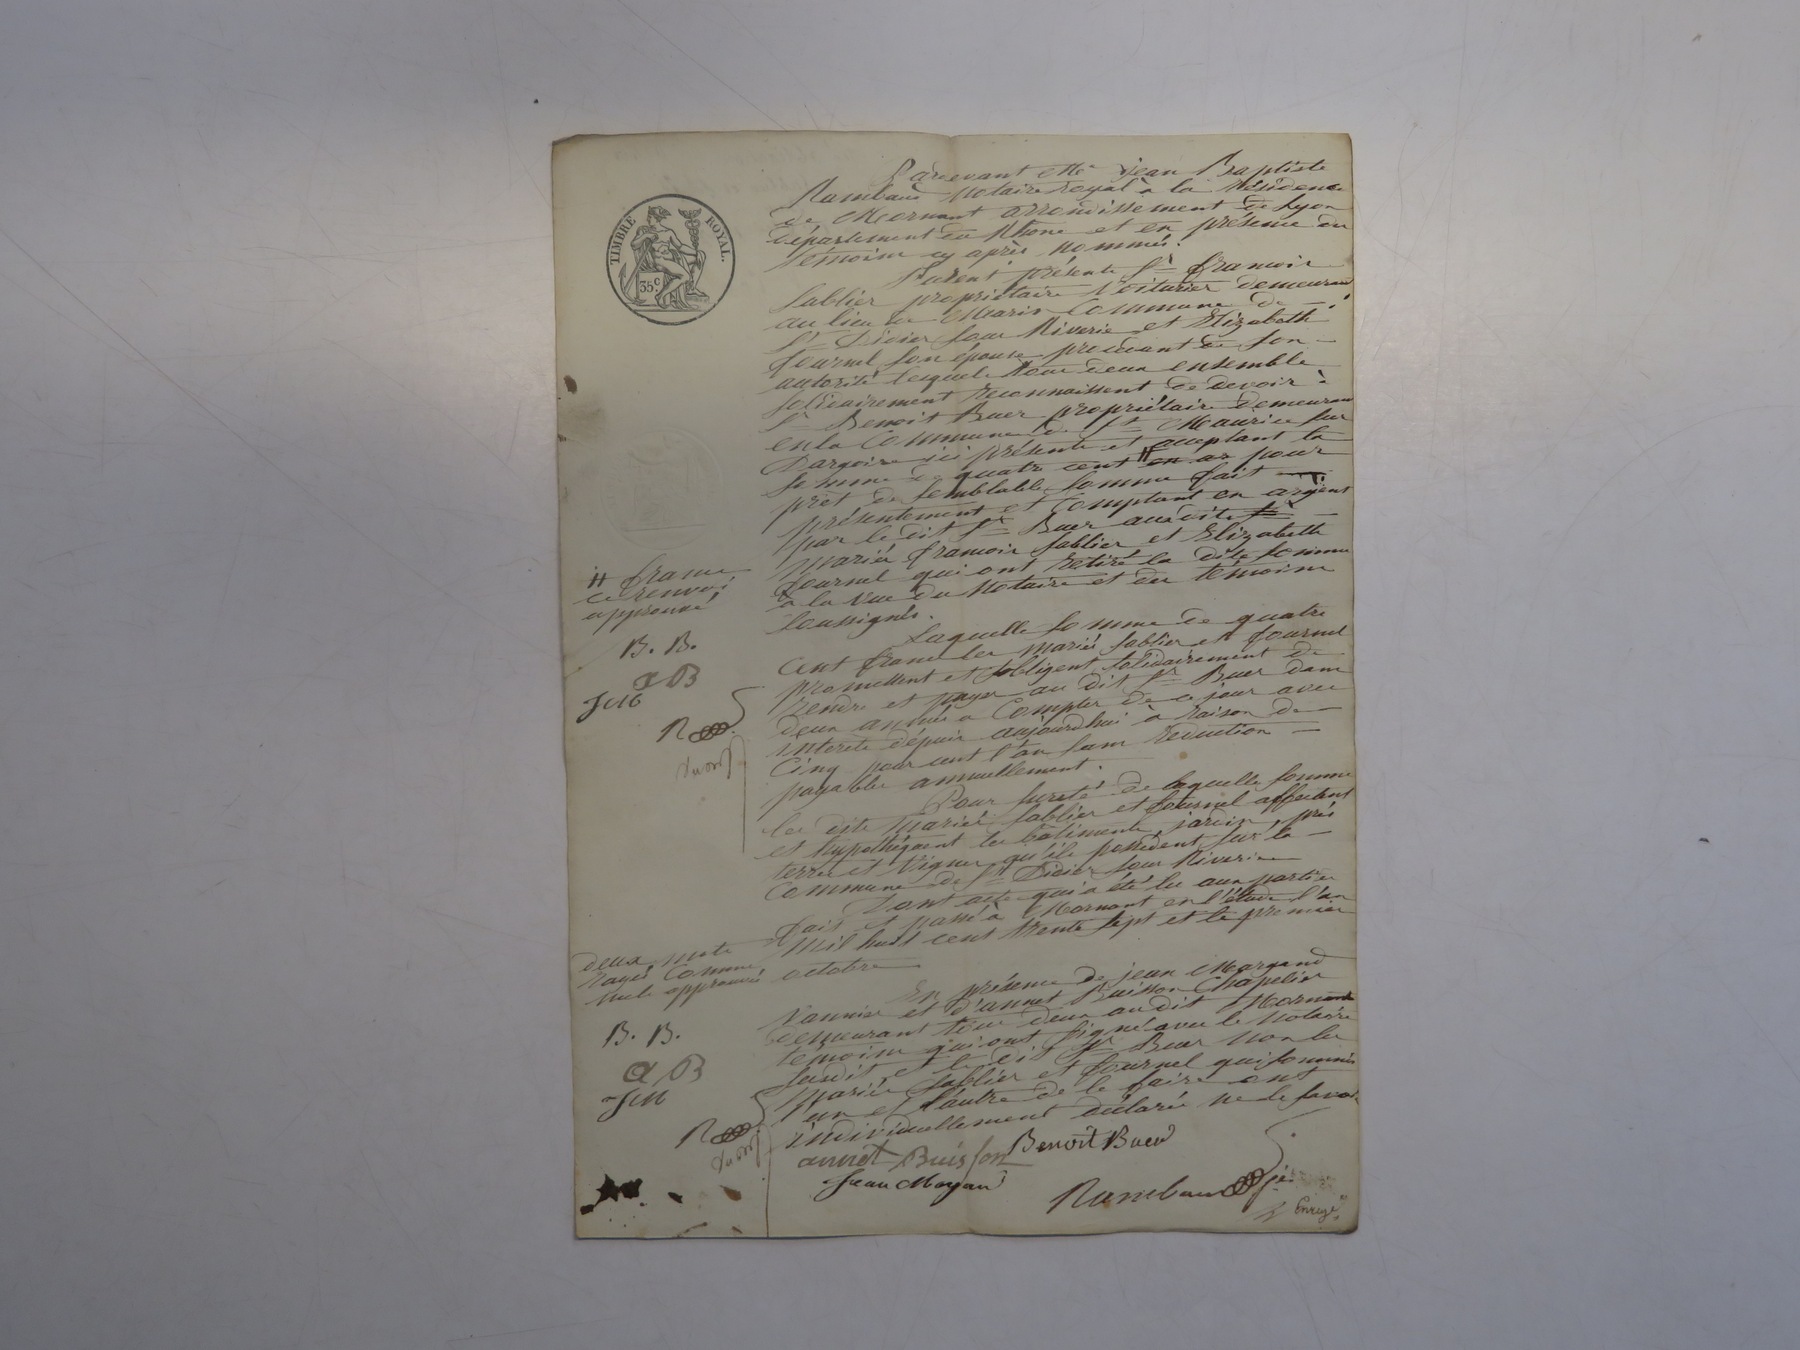 TIMBRE ROYAL.
35c
Pardevant Me jean Baptiste
Rambaud Notaire royal à la résidence
de Mornant arrondissement de Lyon
département du Rhone et en présence des
témoins cy après nommés.
furent présents Sr francois
Sablier propriétaire Voiturier demeurant
au lieu de Commune de
St Didier sous Riverie et Elizabeth
fournel son épouse procédant de son
autorité lesquels tous deux ensemble
solidairement reconnaissent de devoir à
Sr Benoit Buer propriétaire demeurant
en la Commune de St Maurice sur
Dargoire ici présent et acceptant la
somme de quatre cent # pour
prêt de semblable somme fait
présentement et Comptant en argent
par le dit Sr Buer auxdits
mariés francois Sablier et Elizabeth
fournel qui ont retiré la dite somme
à la vue du Notaire et des témoins
soussignés.
# francs
ce renvoi
approuvé
B. B.
a B
JM
R
Laquelle somme de quatre
cent francs les mariés Sablier et fournel
promettent et s'obligent solidairement de
rendre et payer au dit Sr Buer dans
deux années a Compter de ce jour avec
interets dépuis aujourdhui à raison de
Cinq pour cent l'an sans reduction
payables annuellement.
Pour sureté de laquelle somme
les dits mariés Sablier et fournel affectent
et hypothéquent les bâtiments, jardin, prés
terres et vignes qu'ils possedent sur la
commune de St Didier sous Riverie
Dont acte qui a été lu aux parties
fait et passé à Mornant en l'étude l'an
mil huit cent trente sept et le premier
octobre
deux mots
rayés Comme
nuls approuvés
B. B.
a B
JM
R
En présence de jean
Vannier et d'annet Buisson Chapelier
demeurant tous deux audit Mornant
témoins qui ont signé avec le Notaire
susdit et le dit Sr Buer non les
mariés Sablier et fournel qui sommés
l'un et l'autre de le faire ont
individuellement déclaré ne le savoir
annet Buisson Benoit Buer
Jean
Rambaud
Enregé